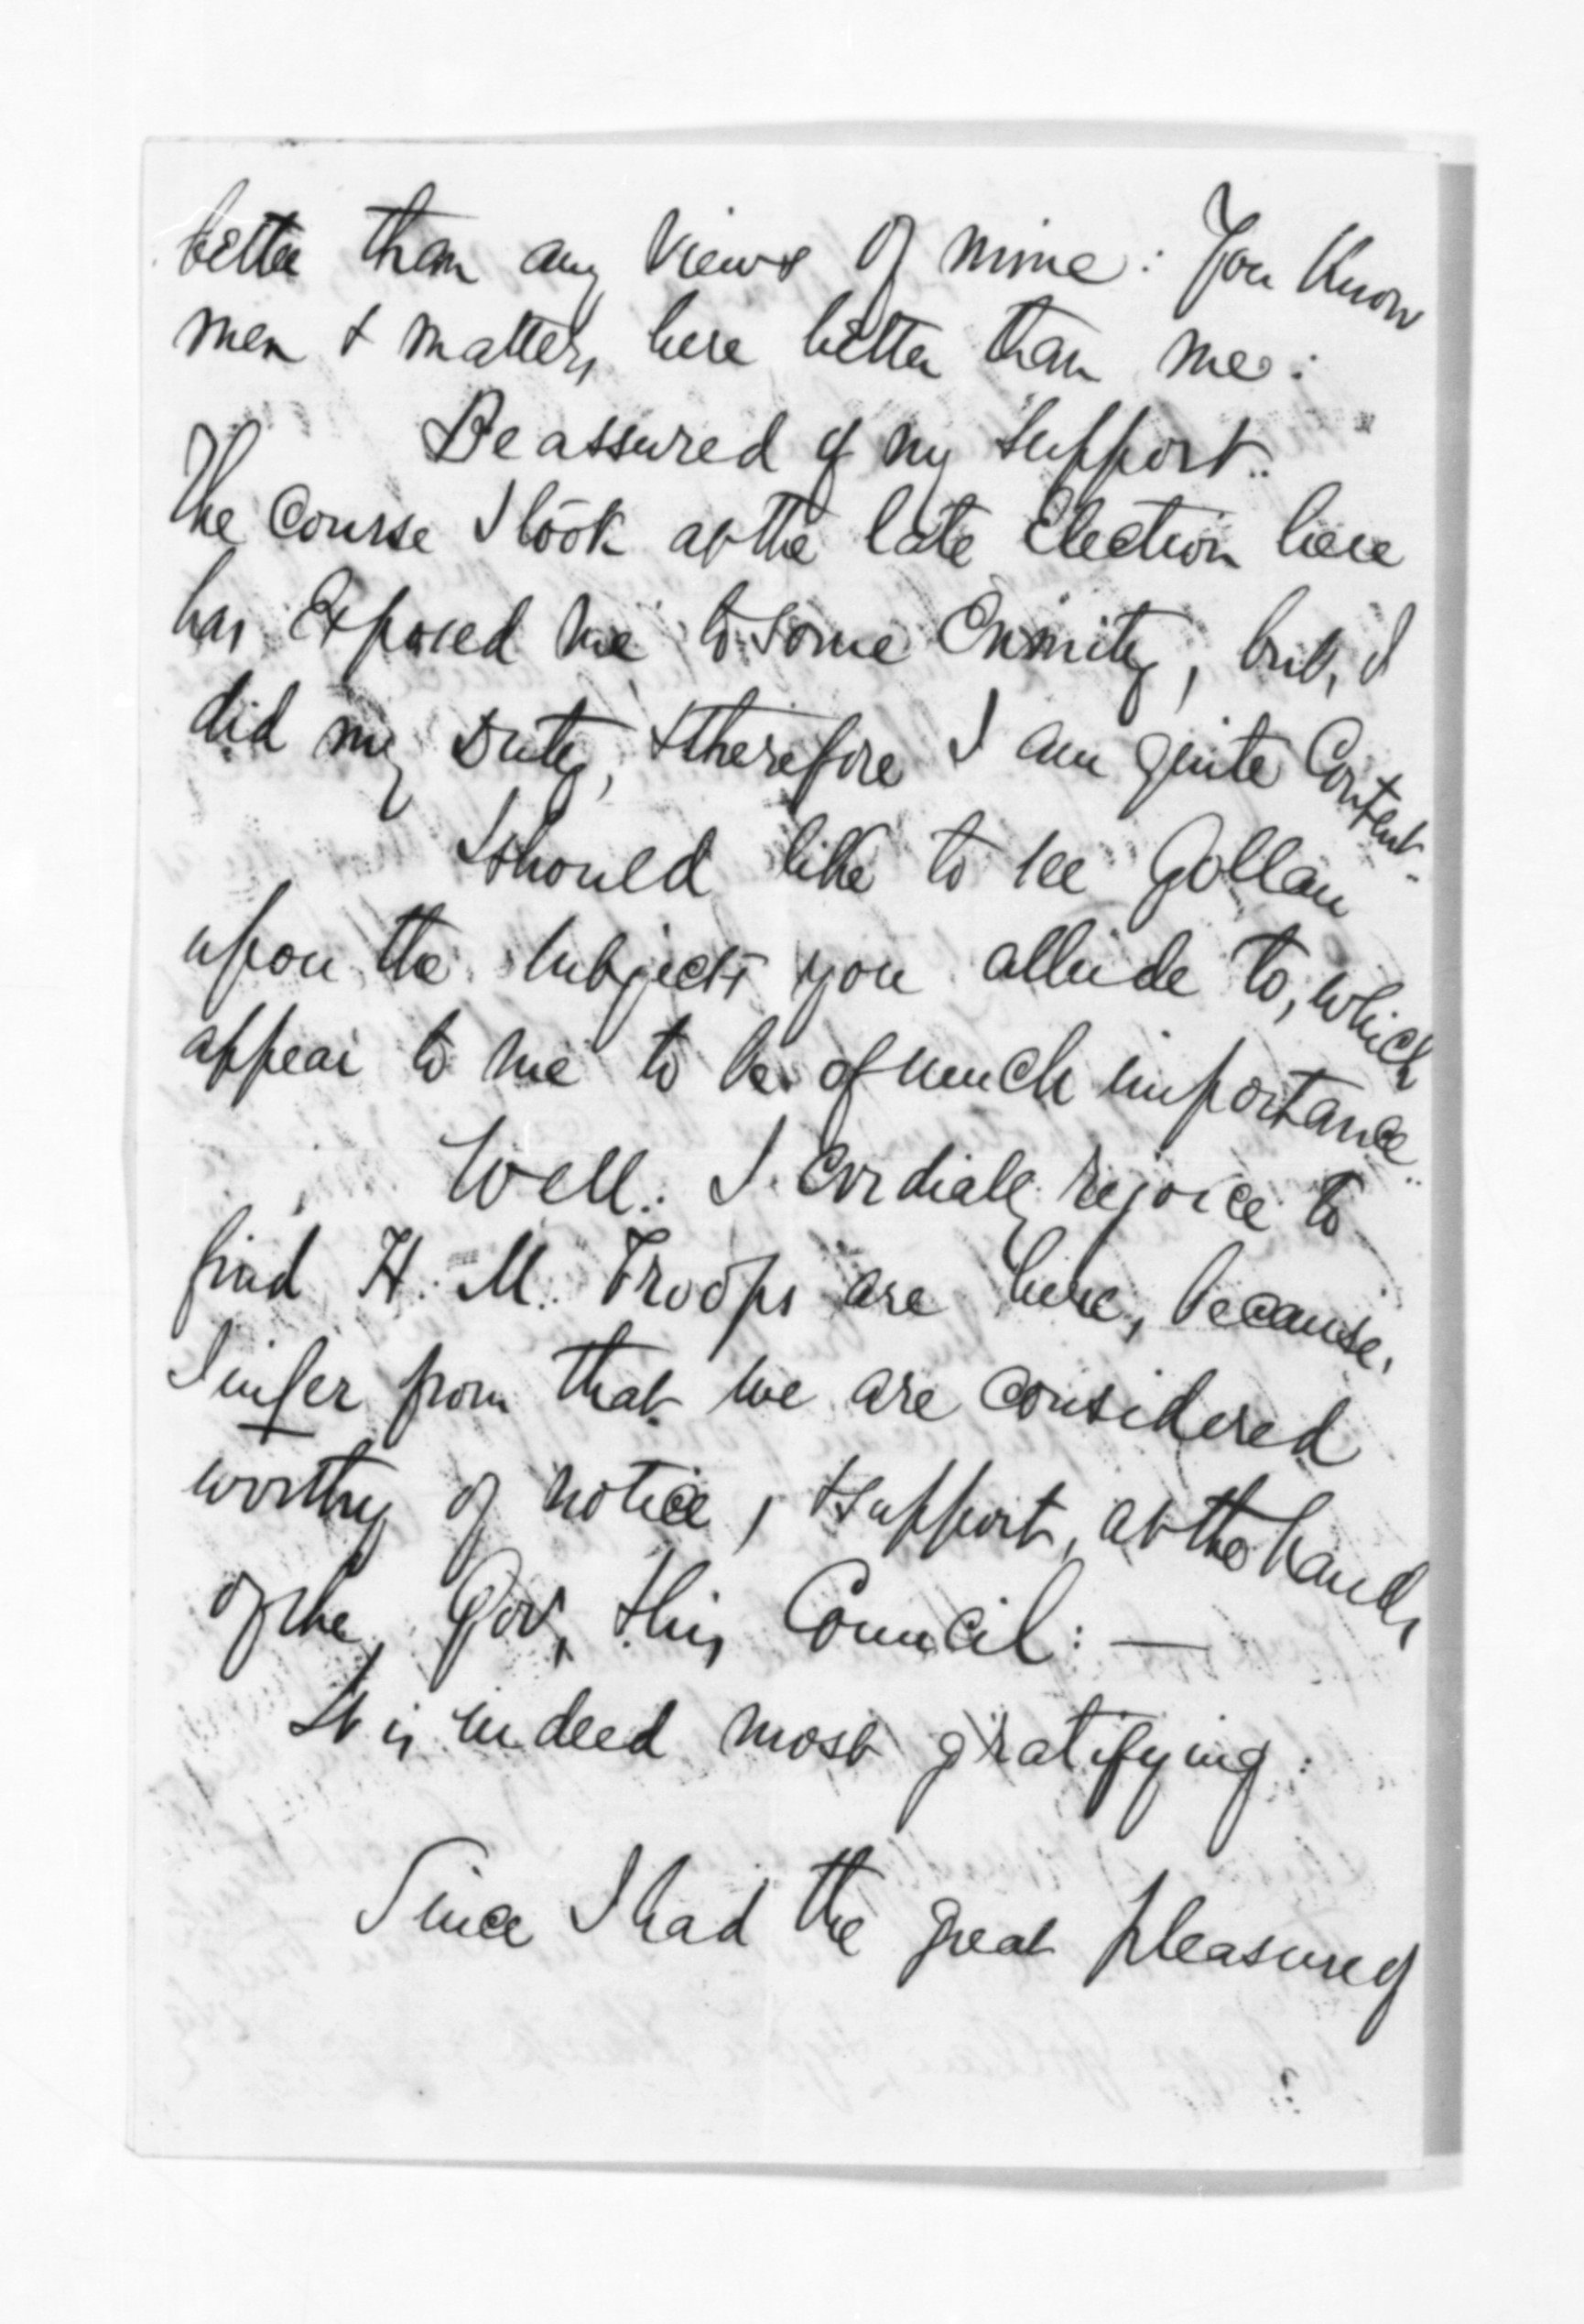 better than any views of mine: You know
men & matters here better than me:
Be assured of my support.
The course I took at the late Election here
has exposed me to some Enmity, but, I
did my Duty, & therefore I am quite Content.
I should like to see Gollan
upon the subjects you allude to, which
appear to me to be of much importance.
Well. I cordially rejoice to
find H. M. Troops are here, because,
I infer from that we are considered
worthy of notice, & support, at the hands
of the Gov, & his Council: —
It is indeed most gratifying:
Since I had the great pleasure of